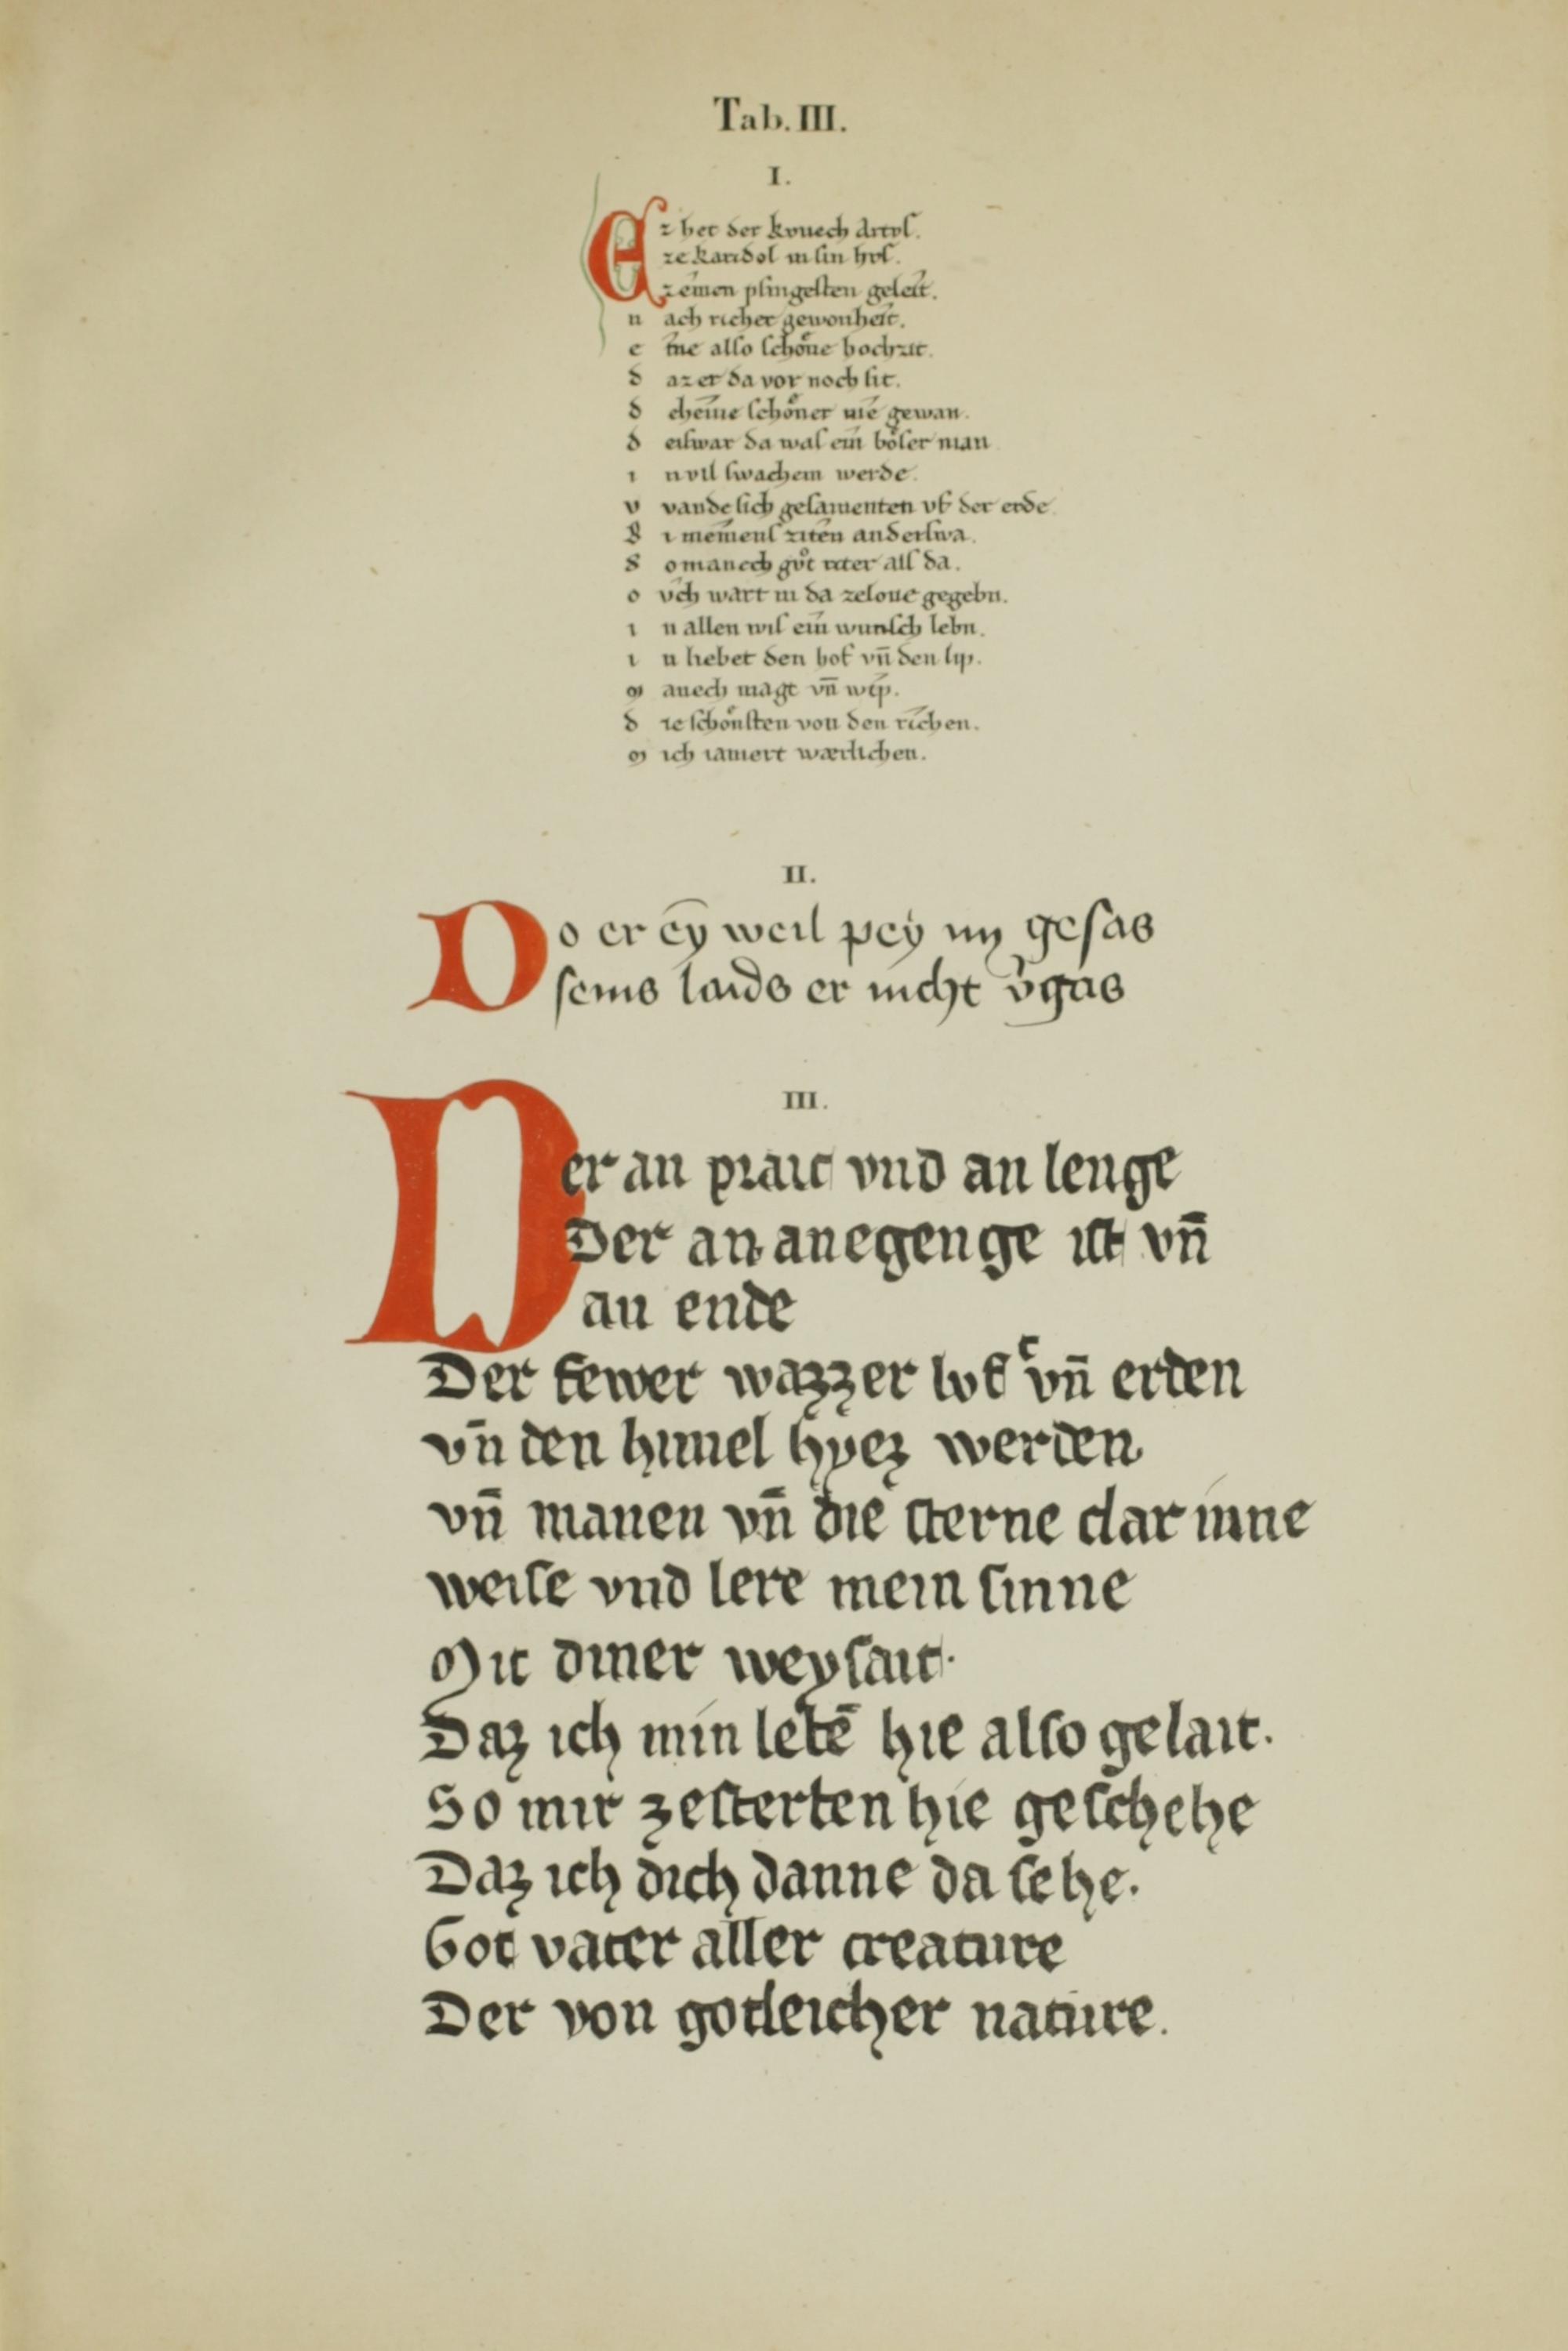 Tab. III.
I.
Ez het der kvnech Artvſ.
ze karidol in ſin hvſ.
zeinen pfingeſten geleit.
n ach richer gewonheit.
e ine alſo ſchoͤne hochzit.
d az er da vor noch ſit.
d cheine ſchoͤner nie gewan.
d eiſwar da waſ ein boͤſer man
i n vil ſwachem werde.
v vande ſich geſamenten vf der erde
b i meinenſ ziten anderſwa.
s o manech gvͦt riter alſ da.
o vch wart in da ze loue gegebn.
i n allen wiſ ein wunſch lebn.
i n liebet den hof vn̄ den lip.
m anech magt vn̄ wip.
d ie ſchoͤnſten von den richen.
m ich iamert wærlichen.
II.
Do er ey̅ weil pey im geſas
ſeins laids er nicht v̓gas
III.
Der an prait vnd an lenge
Der an anegenge iſt vn̄
an ende
Der fewer wazzer lvfͤ vn̄ erden
vn̄ den himel hyez werden
vn̄ manen vn̄ die ſterne dar inne
weiſe vnd lere mein ſinne
Mit diner weyſait.
Daz ich min lebē hie alſo gelait.
So mir ze ſterben hie geſchehe
Daz ich dich danne da ſehe.
Got vater aller creature
Der von gotleicher nature.